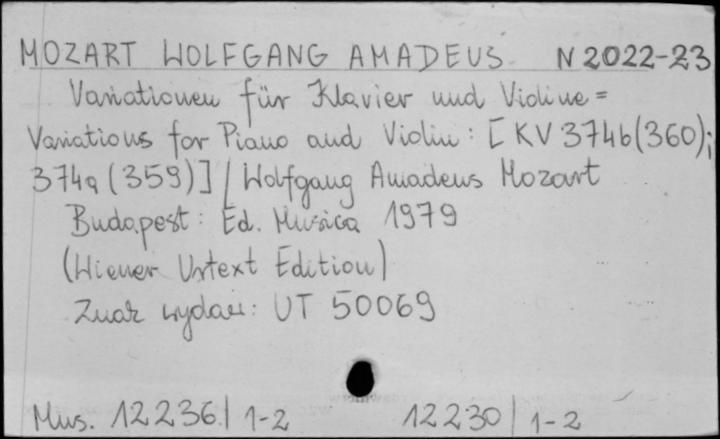 MOZART WOLFGANG AMADEUS N 2022-23
Variationen für Klavier und Violine =
Variations for Piano and Violin : [KV 374b (360);
374a (359)] / Wolfgang Amadeus Mozart
Budapest : Ed. Musica 1979
(Wiener Urtext Edition)
Znak wydaw: UT 50069
Mus. 12236 / 1-2 12230 / 1-2